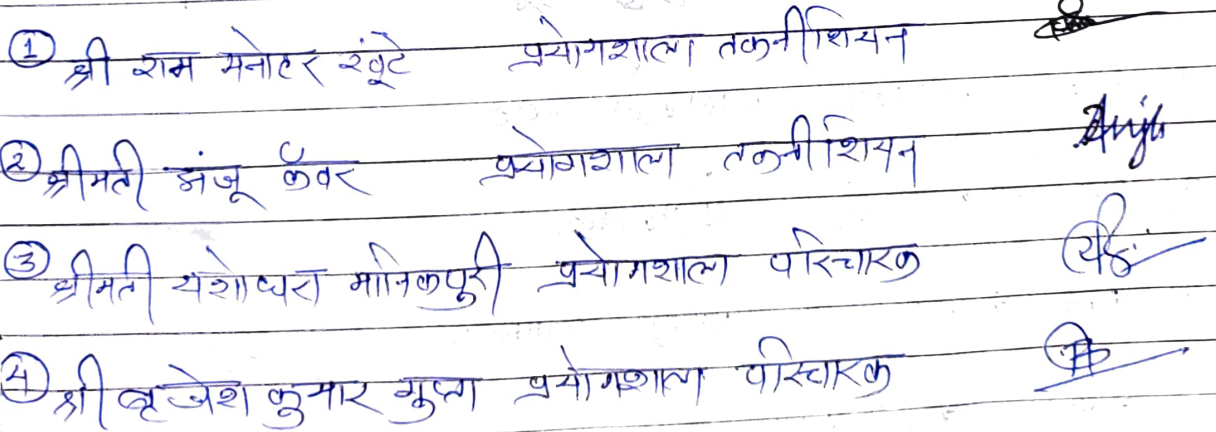 ① श्री राम मनोहर खूंटे प्रयोगशाला तकनीशियन
② श्रीमती अंजू कँवर प्रयोगशाला तकनीशियन Anju
③ श्रीमती यशोधरा मानिकपुरी प्रयोगशाला परिचारक
④ श्री बृजेश कुमार गुप्ता प्रयोगशाला परिचारक